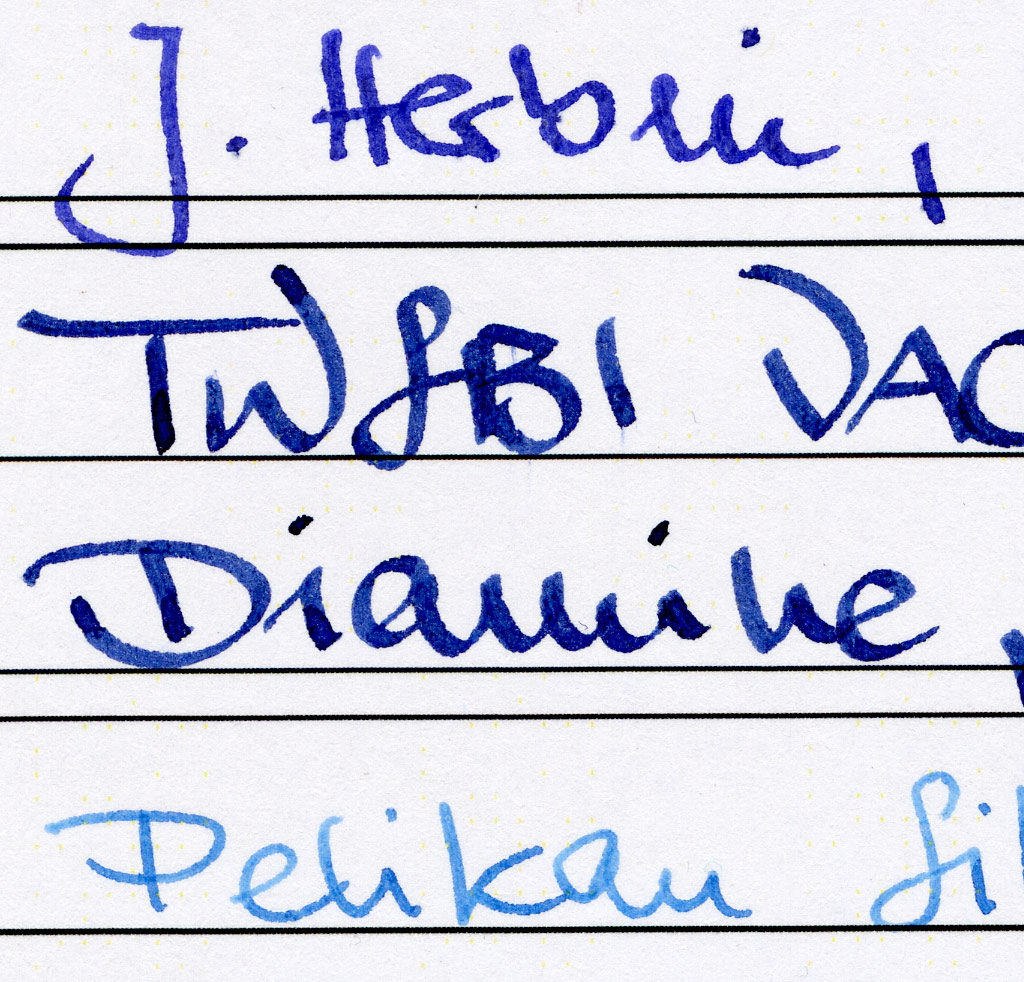 J. Herbin,
TWSBI VAC
Diamine,
Pelikan Sil